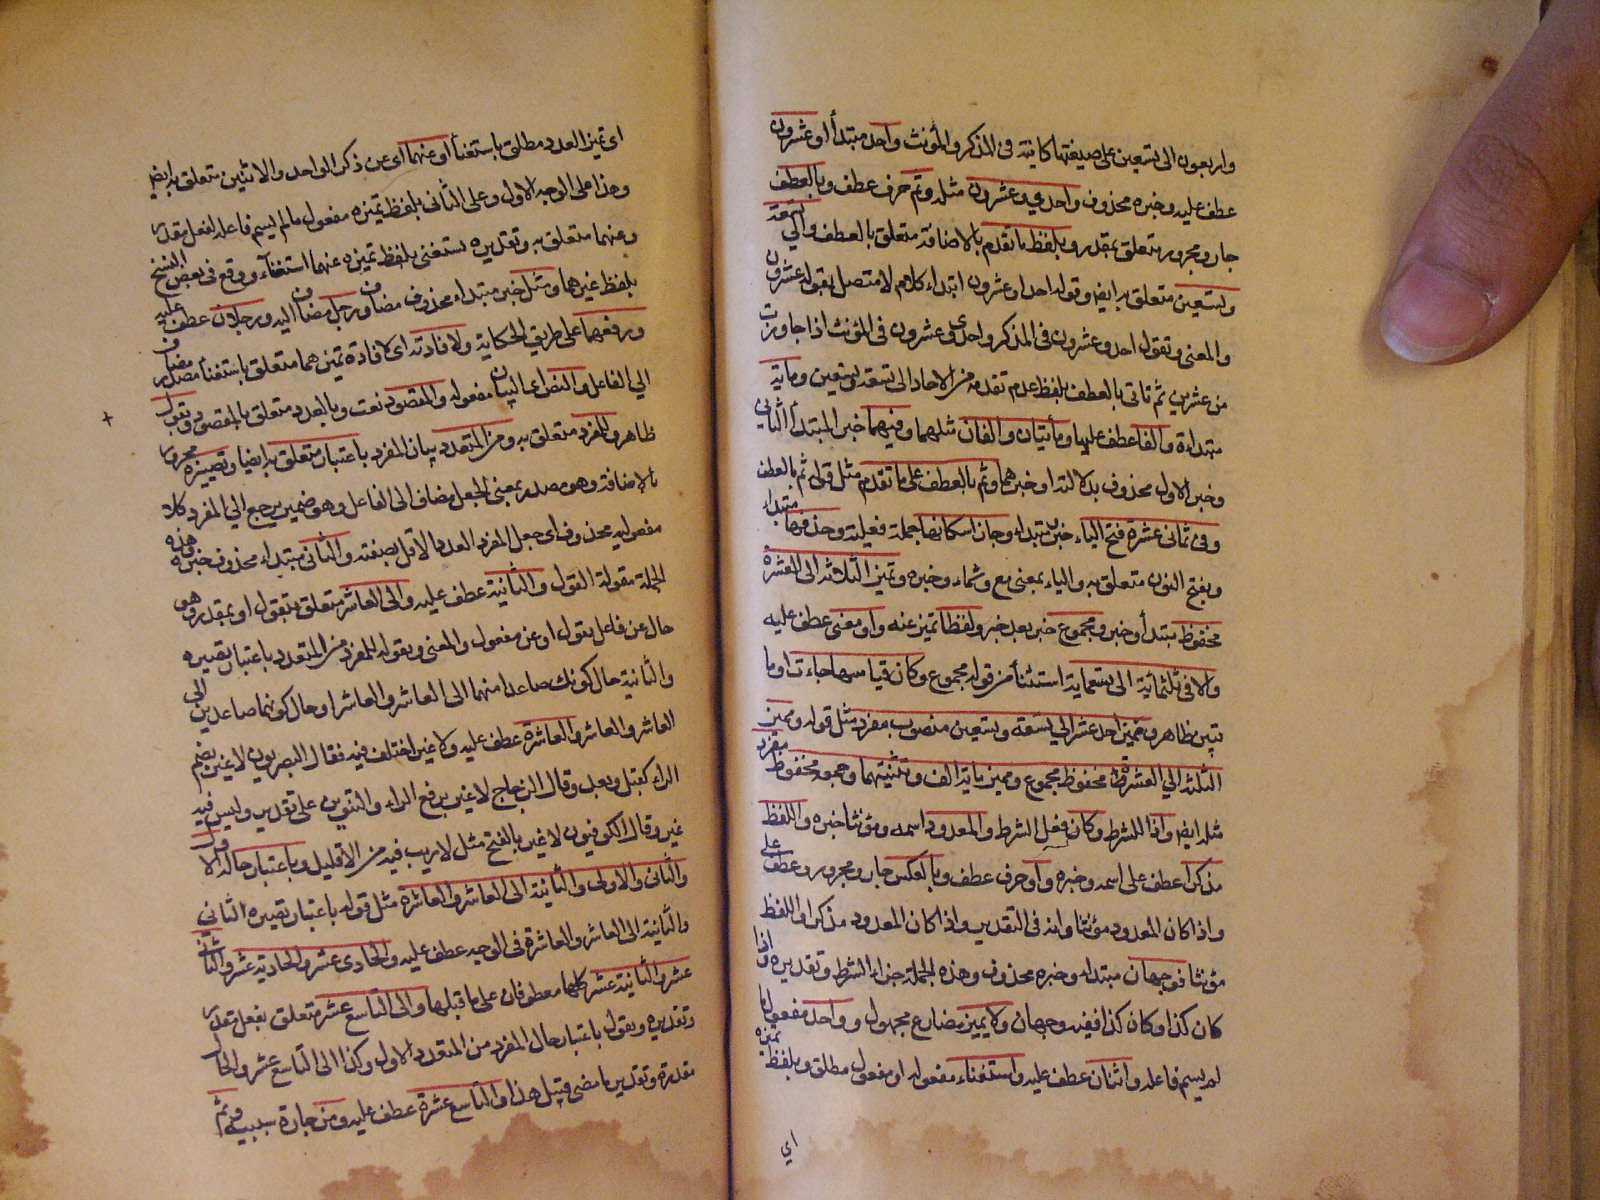 واربعون الى تسعين على صيغتها كائنة فى المذكر والمؤنث واحد مبتدأ او عشرون
عطف عليه وخبره محذوف واحدي وعشرون مثله وثم حرف عطف وبالعطف
جار ومجرور متعلق بمقدر وبلفظ ما تقدم بالاضافة متعلق بالعطف والي تسعة
وتسعين متعلق به ايضا وقوله احد وعشرون ابتداء كلام لا متصل بقوله عشرون
والمعنى وتقول احد وعشرون فى المذكر واحدى وعشرون فى المؤنث اذا جاوزت
من عشرين ثم تاتى بالعطف بلفظ عدم تقدمه من الاحاد الى تسعة وتسعين ومائة
مبتداءة والف عطف عليها ومائتيان والفان مثلهما وفيهما خبر المبتدأ الثاني
وخبر الاول محذوف بدلالته او خبرهما وثم بالعطف على ما تقدم مثل قوله ثم بالعطف
وفى ثمانى عشرة فتح الياء خبر مبتداء وجاز اسكانها جملة فعلية وحذفها مبتداء
وبفتح النون متعلق به والياء بمعنى مع وخبره ومميز الثلاثة الى العشرة
مخفوض مبتدأ وخبر ومجموع خبر بعد خبر ولفظا تميز عنه واو معنى عطف عليه
والا فى ثلثمائة الى تسعمائة استثنأ من قوله مجموع وكان قياسها جاءت او ما
تبين ظاهر ومميز احد عشر الي تسعة وتسعين منصوب مفرد مثل قوله ومميز
الثلثة الي العشرة مخفوظ مجموع ومميز ماية والف وتثنيتهما وجمعه مخفوظ مفرد
مثله ايضا واذا للشرط وكان فعل الشرط والمعدود اسمه ومؤنثا خبره واللفظ
مذكرا عطف على اسمه وخبره واو حرف عطف وبالعكس جار ومجرور وعطف على
واذا كان المعدود مؤنثا وانه فى التقدير واذا كان المعدود مذكرا واللفظ
مؤنثا فوجهان مبتداء وخبره محذوف وهذه الجملة جزاء الشرط وتقديره واذا
كان كذا وكان كذا ففيه وجهان ولا يميز مضارع مجهول وواحد مفعول ما
لم يسم فاعله واثنان عطف عليه واستغناء مفعوله او مفعول مطلق وبلفظ تميزه
اي
اى تميز العدد مطلق باستغنأ او عنهما اى عن ذكر الواحد والاثنين متعلق به ايضا
وهذا على الوجه الاول وعلى الثانى بلفظ تميزه مفعول ما لم يسم فاعله لفعل مقدر
وعنهما متعلق به وتقديره يستغنى بلفظ تميزه عنهما استغناء ووقع فى بعض النسخ
بلفظ غيرهما ومثل خبر مبتداء محذوف مضاف ورجل مضاف اليه ورجلان عطف عليه
ورفعهما على طريق الحكاية ولافادته اى لافادة تميزهما متعلق باستغنأ مصدر مضاف
الي الفاعل والنص اى البيان مفعوله والمقصود نعت وبالعدد متعلق بالمقصود وتقول
ظاهر وللمفرد متعلق به ومن المتعدد بيان المفرد باعتبار متعلق به ايضا وتصييره مجرور
بالاضافة وهو مصدر بمعنى الجعل مضاف الى الفاعل وهو ضمير يرجع الي المفرد وكلا
مفعوليه محذوف اى جعل المفرد العدد الاقل بصفته والثانى مبتداء محذوف خبره وهذه
الجملة مقولة القول والثانية عطف عليه والى العاشر متعلق بتقول او بمقدر وهو
حال عن فاعل تقول او عن مفعول والمعنى وبقوله للمفرد من المتعدد باعتبار تصييره
والثانية حال كونك صاعدا منهما الى العاشر والعاشر او حال كونهما صاعدين الى
العاشر والعاشر والعاشرة عطف عليه ولا غير اختلف فيه فقال البصريون لا غير بضم
الراء كقبل وبعد وقال الزجاج لا غير برفع الراء والتنوين على تقدير وليس فيه
غير وقال الكوفيون لا غير بالفتح مثل لا ريب فيه من الاقليل وباعتبار حاله الاول
والثانى والاولى والثانية الى العاشر والعاشرة مثل قوله باعتبار تصييره الثانى
والثانية الى العاشر والعاشرة فى الوجيه عطف عليه والحادى عشر والحادية عشر والثانى
عشر والثانية عشر كلها معطوفان على ما قبلها والى التاسع عشر متعلق بفعل مقدر
وتقديره وبقول باعتبار حال المفرد من المتعدد الاول وكذا الى التاسع عشر والحال
مقدرة وتقدير ما مضى قبيل هذا والتاسع عشرة عطف عليه ومن جارة سببية وثم